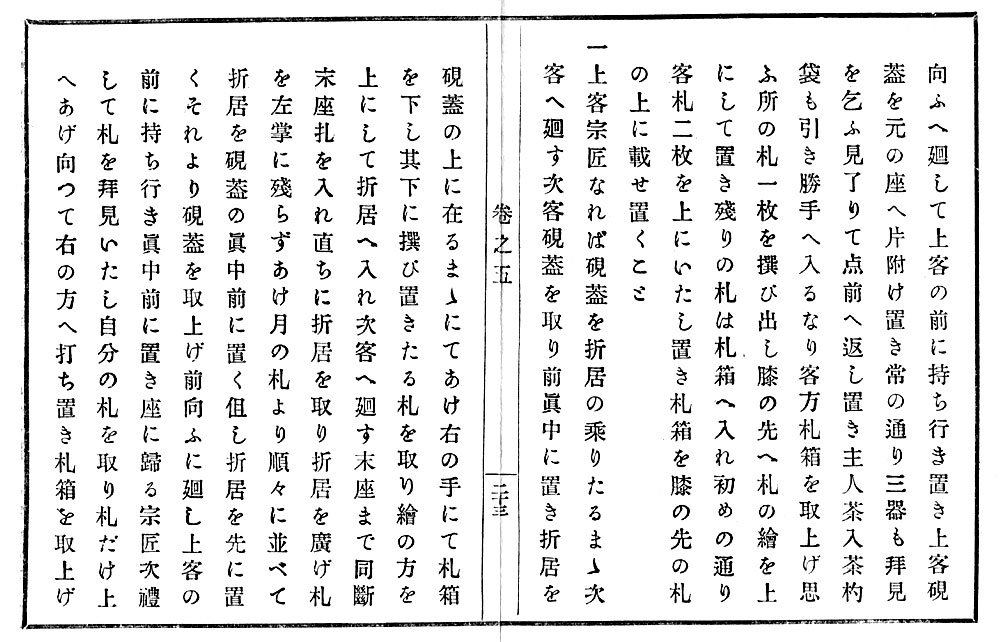 向ふへ廻して上客の前に持ち行き置き上客硯
蓋を元の座へ片附け置き常の通り三器も拜見
を乞ふ見了りて点前へ返し置き主人茶入茶杓
袋も引き勝手へ入るなり客方札箱を取上げ思
ふ所の札一枚を撰び出し膝の先へ札の繪を上
にして置き殘りの札は札箱へ入れ初めの通り
客札二枚を上にいたし置き札箱を膝の先の札
の上に載せ置くこと
一上客宗匠なれば硯蓋を折居の乘りたるまゝ次
客へ廻す次客硯蓋を取り前眞中に置き折居を
卷之五
二十三
硯蓋の上に在るまゝにてあけ右の手にて札箱
を下し其下に撰び置きたる札を取り繪の方を
上にして折居へ入れ次客へ廻す末座まで同斷
末座札を入れ直ちに折居を取り折居を廣げ札
を左掌に殘らずあけ月の札より順々に並べて
折居を硯蓋の眞中前に置く但し折居を先に置
くそれより硯蓋を取上げ前向ふに廻し上客の
前に持ち行き眞中前に置き座に歸る宗匠次禮
して札を拜見いたし自分の札を取り札だけ上
へあげ向つて右の方へ打ち置き札箱を取上げ